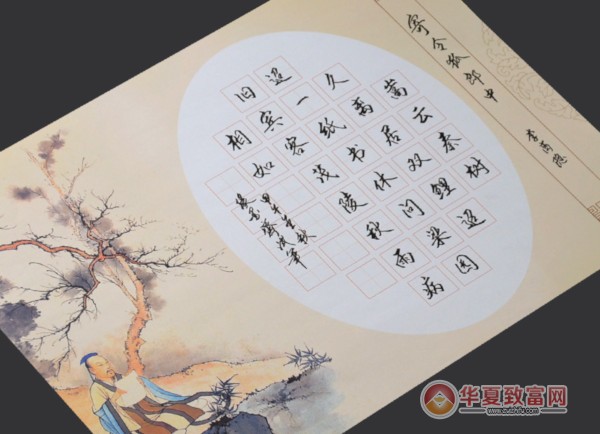 寄令狐郎中
李商隐
嵩云秦树
久离居双鲤迢
迢一纸书休问梁园
旧宾客茂陵秋雨病
相如
甲午年秋
华夏致富网